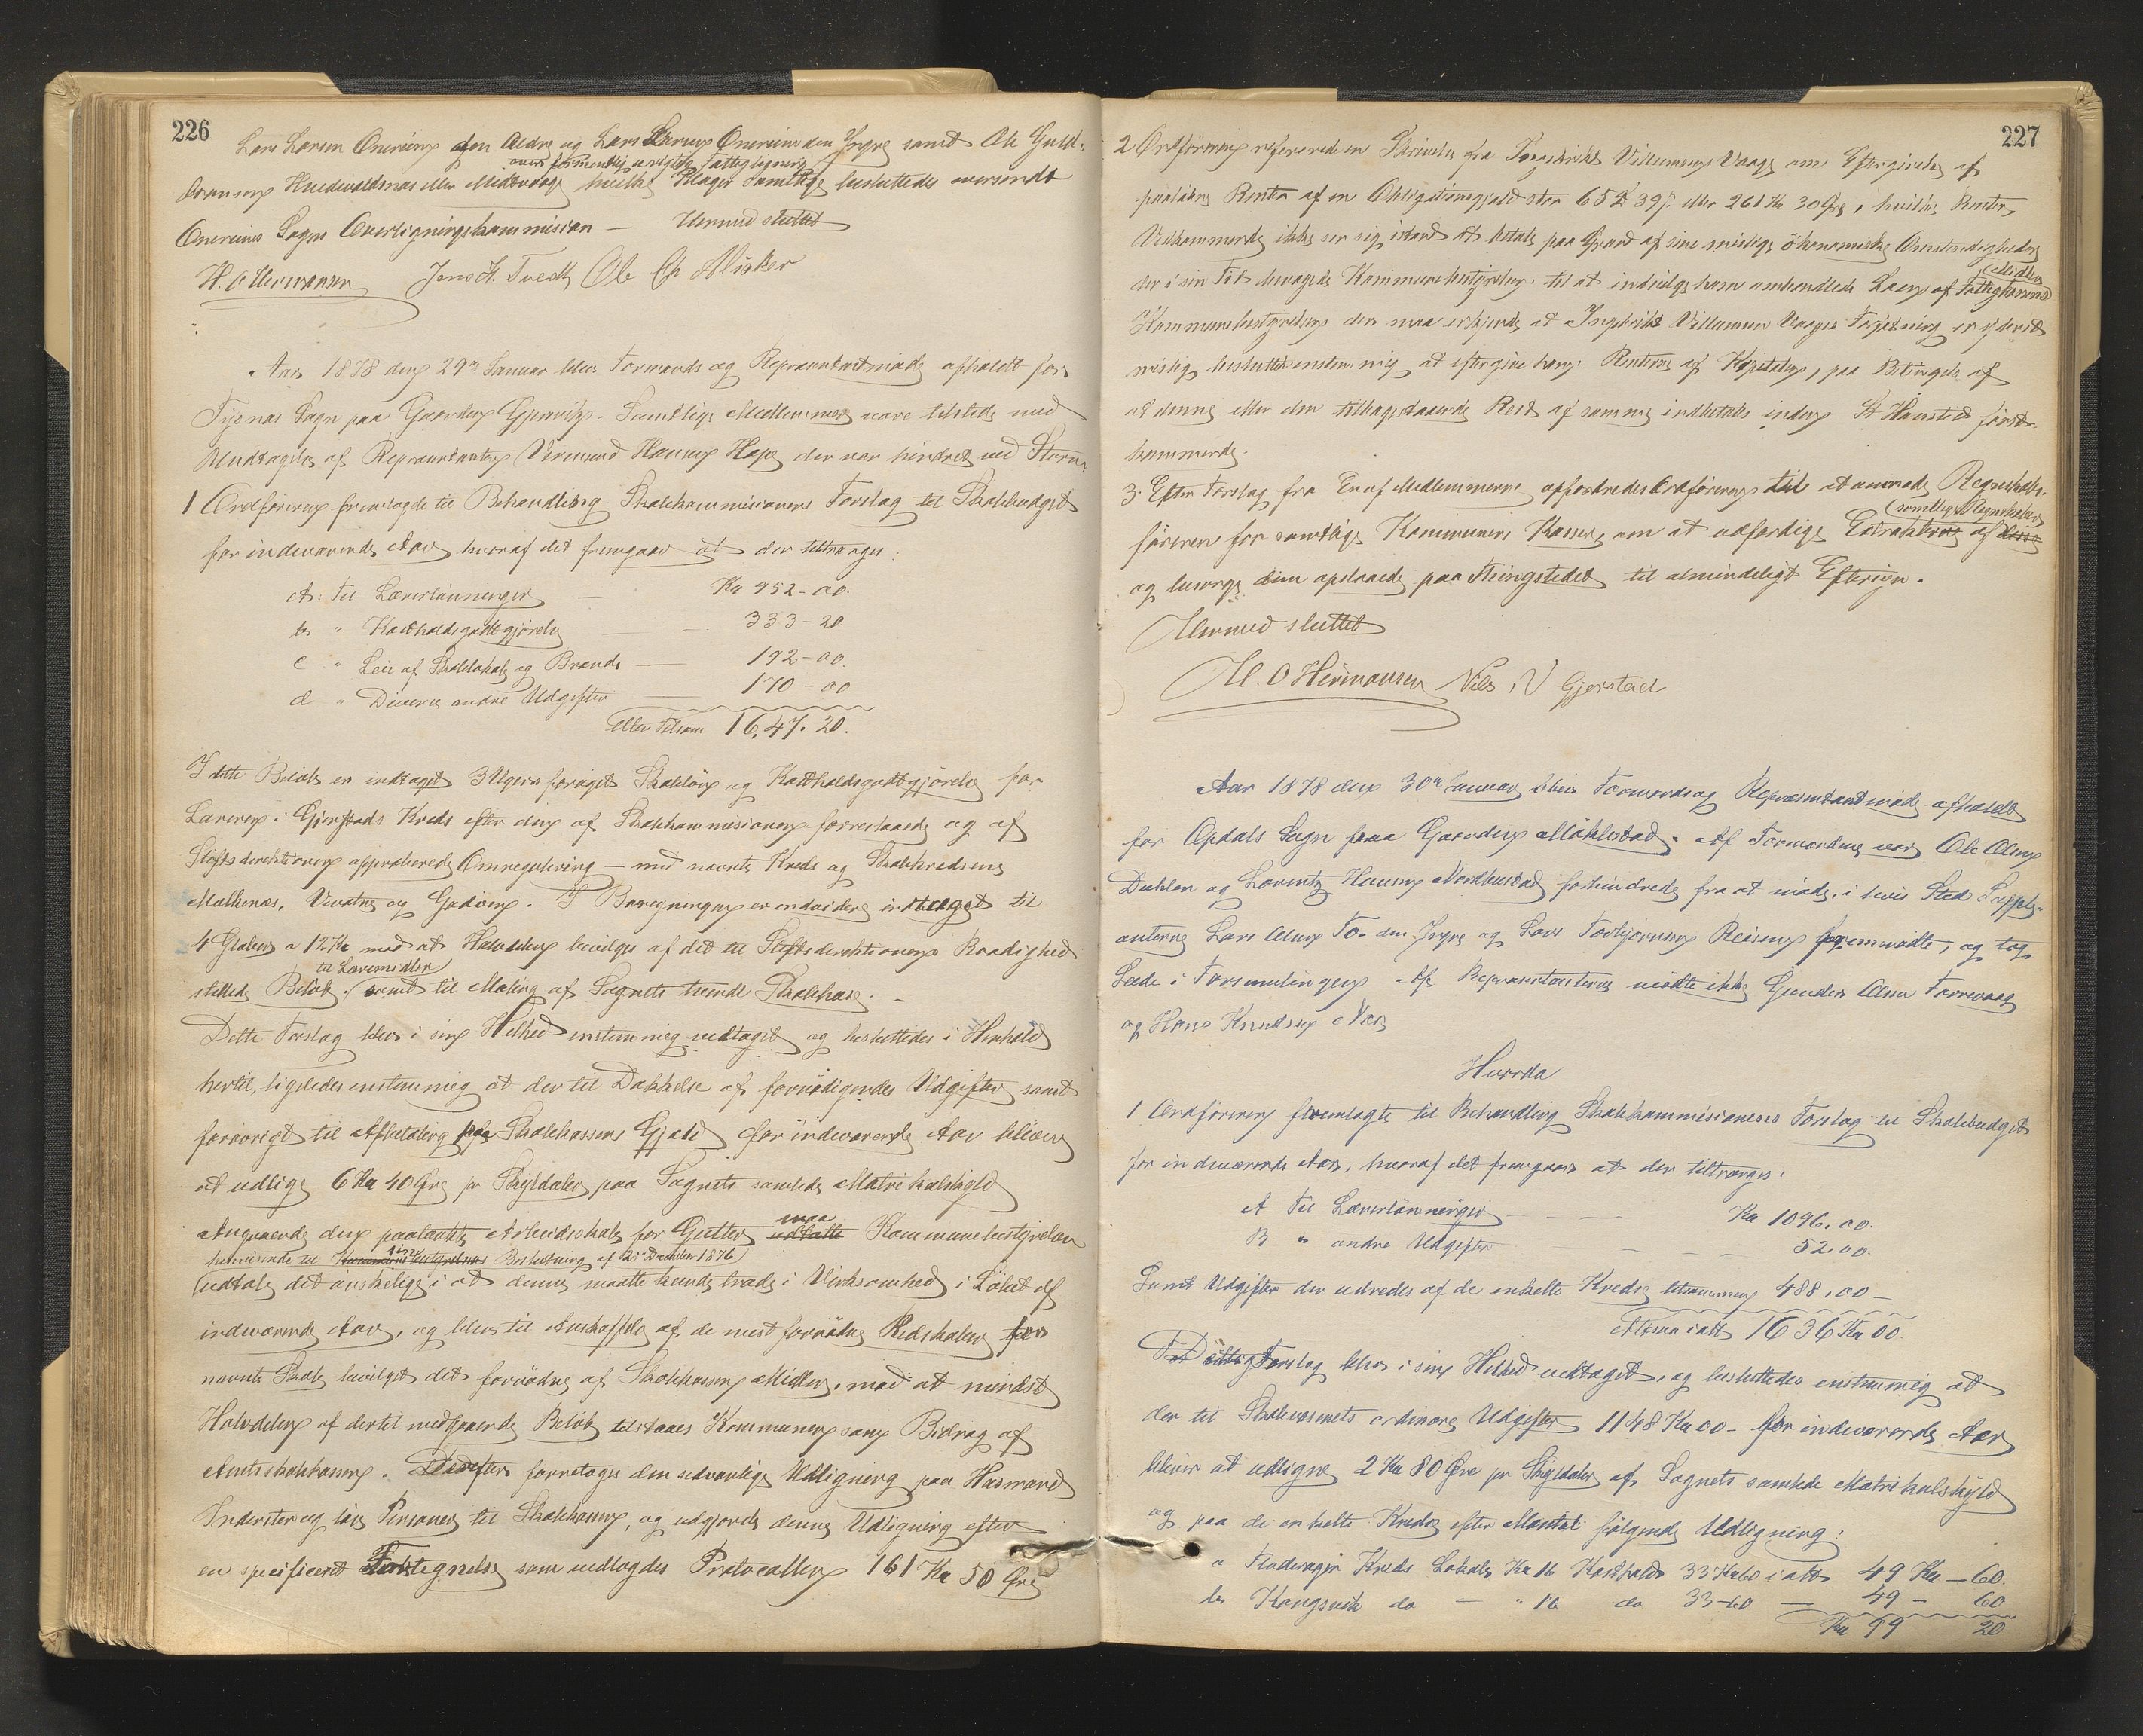 226
Lars Larsen Onereim den Ældre og Lars Larsen Onereim den Yngre samt Ole Guld-
over formentlig urigtig Fattigligning
Huedevaldsnæs eller Midtvaage hvilke Klager samtlige besluttedes oversendt
Onereims Sogns Overligningskommission — Hermed sluttet
H. O Hermansen Jens H. Tvedt Ole Chr Alsaker
Aar 1878 den 29de Januar blev Formands og Repræsentantmøde afholdt for
Tysnæs Sogn paa Gaarden Gjervik. Samtlige Medlemmer vare tilstede med
Undtagelse af Repræsentanten Vermund Hansen Hope der var hindret ved Storm
1 Ordføreren fremlagde til Behandling Skolekommisionens Forslag til Skolebudget
for indeværende Aar hvoraf det fremgaar at der tiltrænges:
A: Til Lærerlønninger — Kr 952-00.
b " Kostholdsgodtgjørelse 333-20.
c " Leie af Skolelokale og Brænde — 192-00.
d " Diverse andre Udgifter 170-00
eller tilsam 16,47.20.
I dette Beløb er indtaget 3 Ugers forøget Skoleløn og Kostholdsgodtgjørelse for
Læreren i Gjerstads Kreds efter den af Skolekommisionen foreslaaede og af
Stiftsdirektionen approberede Omregulering — med nævnte Kreds og Skolekredsene
Malkenæs, Vivatne og Godøen. I Beregningen er endvidere indtaget til
4 Glober a 12 Kr mod at Halvdelen bevilges af det til Stiftsdirektionens Raadighed
til Læremidler
stillede Beløb. samt til Maling af Sognets tvende Skolehuse. —
Dette Forslag blev i sin Helhed enstemmig vedtaget og besluttedes i Henhold
hertil, ligeledes enstemmig at der til Dækkelse af fornødigendes Udgifter samt
forøvrigt til Afbetaling paa Skolekassens Gjæld for indeværende Aar bliver
at udlige 6 Kr 40 Øre pr Skyldaler paa Sognets samlede Matrikulskyld
maa
Angaaende den paatænkte Arbeidsskole for Gutter udtalte Kommunebestyrelsen
henvisende til Kommunebestyrelsens sin Beslutning af 20de December 1876
udtale det ønskelige i at denne maatte kunde træde i Virksomhed i Løbet af
indeværende Aar, og blev til Anskaffelse af de mest fornødne Redskaber for
nævnte Skole bevilget det fornødne af Skolekassens Midler, mod at mindst
Halvdelen af dertil medgaaende Beløb tilstaaes Kommunen som Bidrag af
Amtsskolekassen. Derefter foretoges den sedvanlige Udligning paa Husmænd
Inderster og løse Personer til Skolekassen, og udgjorde denne Udligning efter
en specificeret Fortegnelse som vedlagdes Protocollen 161 Kr 50 Øre
227
2 Ordføreren refererede en Skrivelse fra Ingebrikt Villumsen Vaage om Eftergivelse af
paaløbne Renter af en Obligationsgjæld stor 65 Spd 39 s. eller 261 Kr 30 Øre, hvilke Renter
Vedkommende ikke ser sig istand at betale paa Grund af sine mislige økonomiske Omstændigheder
Midler
der i sin Tid bevægede Kommunebestyrelsen til at indvilge ham omhandlede Laan af Fattigkassens
Kommunebestyrelsen der maa erkjende at Ingebrikt Villumsen Vaages Forfatning er yderst
mislig besluttede enstemmig at eftergive ham Renterne af Kapitalen, paa Betingelse af
at denne eller den tilbagestaaende Rest af samme indbetales inden St Hanstid først-
kommende.
3. Efter Forslag fra En af Medlemmerne opfordredes Ordføreren til at anmode Regnskabs-
samtlige Regnskaber
føreren for samtlige Kommunens Kasser, om at udfærdige Extrakterne af disse
og besørge dem opslaaede paa Thingstedet til almindeligt Eftersyn.
Hermed sluttet
H. O Hermansen Nils N Gjerstad
Aar 1878 den 30te Januar blev Formands og Repræsentantmøde afholdt
for Opdals Sogn paa Gaarden Møklestad. Af Formændene var Ole Olsen
Dahlen og Lorentz Hansen Nordhustad forhindrede fra at møde, i hvis Sted Supple-
anterne Lars Olsen To den Yngre og Lars Torbjørnsen Reisen fremmødte, og tog
Sæde i Forsamlingen. Af Repræsentanterne mødte ikke Gunder Olsen Færevaag
og Hans Knudsen Næs
Hvorda
1 Ordføreren fremlagte til Behandling Skolekommisionens Forslag til Skolebudget
for indeværende Aar, hvoraf det fremgaar at der tiltrænges:
A Til Lærerlønninger — Kr 1096.00.
B " andre Udgifter — 52.00.
Samt Udgifter der udredes af de enkelte Kredse tilsammen 488,00 —
Altsaa i alt 1636 Kr 00.
Dette Forslag blev i sin Helhed vedtaget, og besluttedes enstemmig at
der til Skolevæsnets ordinære Udgifter 1148 Kr 00 — for indeværende Aar
bliver at udligne 2 Kr 80 Øre pr Skyldaler af Sognets samlede Matrikulskyld
og paa de enkelte Kredse efter Mantal følgende Udligning:
a Fladevagn Kreds Lokale Kr 16 Kosthold 33 Kr 60 i alt 49 Kr — 60.
b Kongsvik do — " 16 do 33-60 — 49 — 60
Kr 99 20